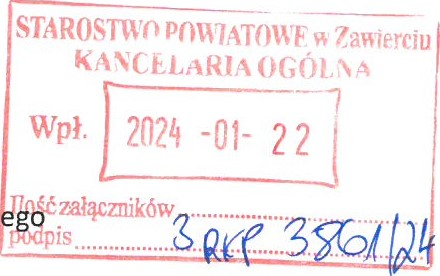 STAROSTWO POWIATOWE w Zawierciu
KANCELARIA OGÓLNA
Wpł. 2024 -01- 22
Ilość załączników
ego
podpis 3 RKP 3861/24